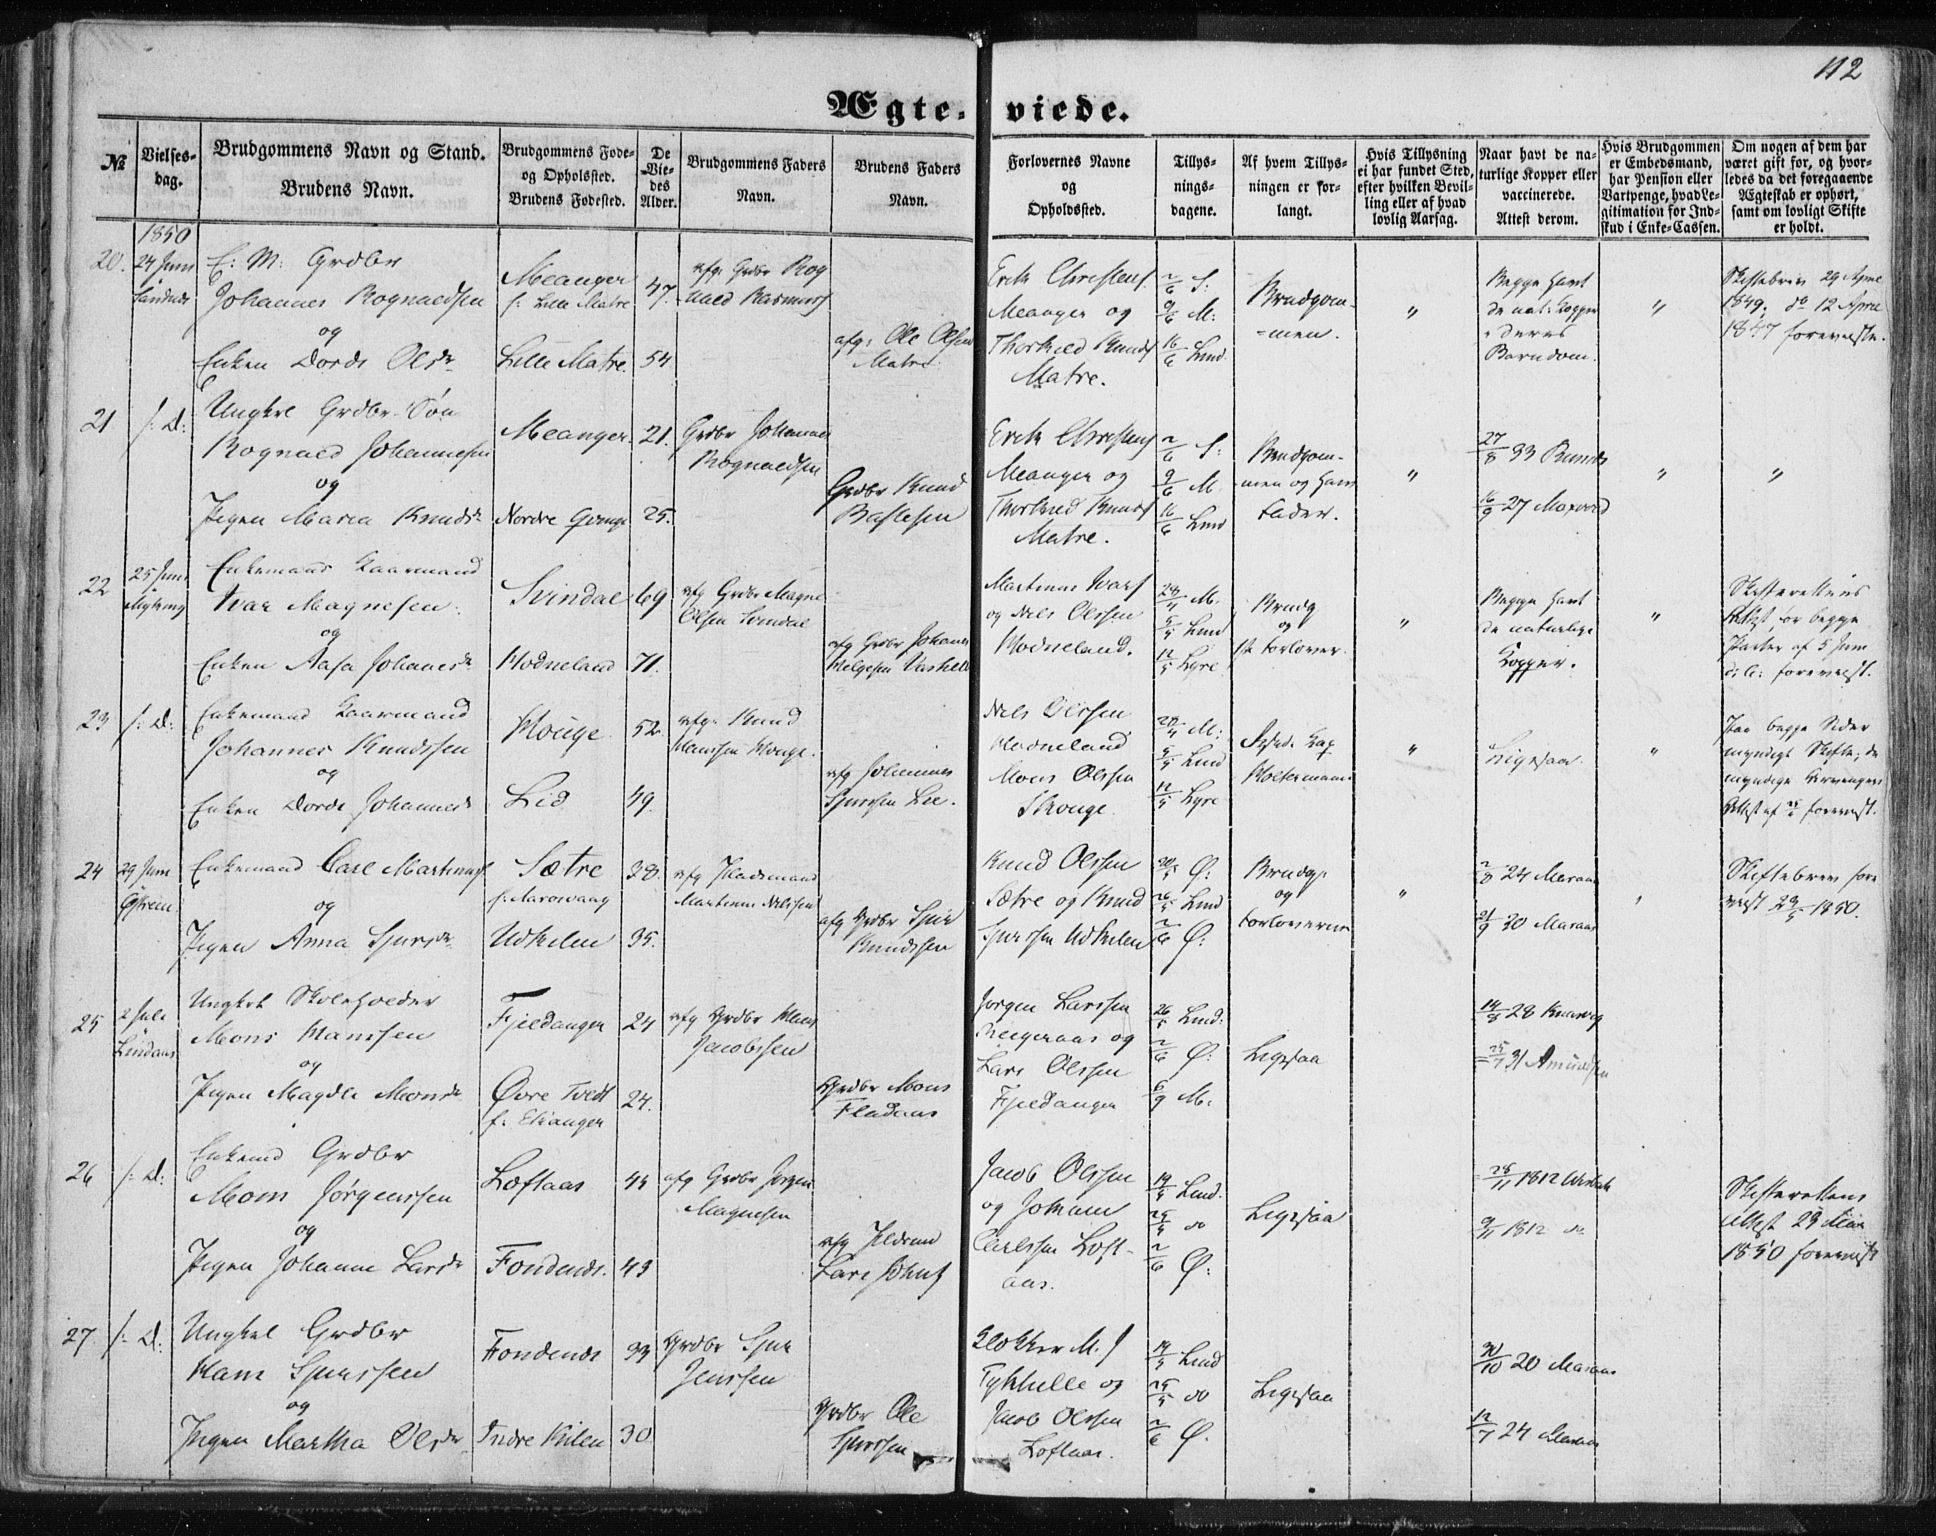 112
Ægte- viede.
№
Vielses-
dag.
Brudgommens Navn og Stand.
Brudens Navn.
Brudgommens Føde-
og Opholssted.
Brudens Fødested.
De
Vie-
des
Alder.
Brudgommens Faders
Navn.
Brudens Faders
Navn.
Forlovernes Navne
og
Opholdssted.
Tillys-
nings-
dagene.
Af hvem Tillys-
ningen er for-
langt.
Hvis Tillysning
ei har fundet Sted,
efter hvilken Bevil-
ling eller af hvad
lovlig Aarsag.
Naar havt de na-
turlige Kopper eller
vaccinerede.
Attest derom.
Hvis Brudgommen
er Embedsmand,
har Pension eller
Vartpenge, hvad Le-
gitimation for Ind-
skud i Enke-Cassen.
Om nogen af dem har
været gift før, og hvor-
ledes da det foregaaende
Ægteskab er ophørt,
samt om lovligt Skifte
er holdt.
1850
20. 24 Juni
E: M: Grdbr
Johannes Rognaldsen
og
Enken Dorde Olsdr
Meanger
f. Lille Matre
Lille Matre.
47.
54
afg: Grdbr Rog
nald Rasmuss
afg: Ole Olsen
Matre
Erik Christens
Meanger og
Thorkild Knuds
Matre.
2/6 S:
9/6 M:
16/6 Lind
Brudgom-
-men.
"
Begge havt
de nat: Kopper
i deres
Barndom.
"
Skiftebrev 29 April
1849. do 12 April
1847 foreviste.
21 /: D:
Ungkrl Grdbr Søn
Rognald Johannesen
og
Pigen Maria Knudsdr
Meanger.
21.
25.
Grdbr Johannes
Rognaldsen
Grdbr Knud
Erik Christens
Meanger og
Thorkild Knuds
Matre.
2/6 S:
9/6 M.
16/6 Lind
Brudgom-
men og hans
Fader.
"
27/8 33
16/9 27
"
"
22 25 Juni
Enkemand Kaarmand
Ivar Magnesen
og
Enken Aasa Johannesdr
Svindal
Hodneland
69
71.
afg Grdbr Magne
Olsen Svindal
afg Grdbr Johannes
Martinus Ivars
og Nels Olssen
Hodneland.
M.
5/5 Lind
12/5 Lyre
Brudg
og
Forlover.
"
Begge havt
de naturlige
Kopper.
"
Skifterettens
Attest for begge
Parter af 5 Juni
forevist.
23 /: D:
Enkemand Kaarmand
Johannes Knudssen
og
Enken Dorde Johannesdr
Houge
Lid
52
49.
afg: Knud
Hanssen Houge.
afg Johannes
Nels Olssen
Hodneland
Mons Olssen
M:
5/5 Lind
12/5 Lyre
"
Ligesaa.
"
Paa begge Sider
myndigt Skifte; de
myndige Arvingers
Attest af forevist.
24 29 Juni
Enkemand Carl Martinus
og
Pigen Anna Sjursdr
Sætre
Udkilen
38.
35.
afg Pladsmand
Martinus Nilssen
afg Grdbr Sjur
Knudssen
Knud Olssen
Sætre og Knud
Sjurssen Udkilen
20/5 Ø:
26/5 Lind
2/6 Ø:
Brudg:
og
Forloverne
"
2/8 24
21/9 30
"
Skiftebrev fore
vist 1850.
25 2 Juli
Lindaas
Ungkrl Skoleholder
Mons Hanssen
og
Pigen Magdli Monsdr
Fjeldanger
Øvre Tvedt
24
24.
afg Grdbr Hans
Jacobssen
Grdbr Mons
Jørgen Larssen
og
Lars Olssen
Fjeldanger
26/5 Lind:
2/6 Ø:
M:
Ligesaa
14/8 28
31 Amundsen
26 /: D:
Enkemd Grdbr
Mons Jørgenssen
og
Pigen Johanne Larsdr
Loftaas
Fondenes.
43
afg Grdbr Jørgen
Magnesen
afg
Lars Johns
Jacob Olssen
og Johan
Carlssen Loft-
aas.
Lind.
do
2/6 Ø:
Ligesaa
1812
9/11 1812 do
Skifterettens
Attest
1850 forevist
27. /: D:
Ungkrl Grdbr
Hans Sjurssen
og
Pigen Martha Olsdr
Fondenes
Indre Kilen
33
30
Grdbr Sjur
Jenssen
Grdbr Ole
Sjurssen
Klokker M. J
og
Jacob Olssen
Loftaas.
Lind
do
2/6 Ø.
Ligesaa
30/10 20
12/7 24